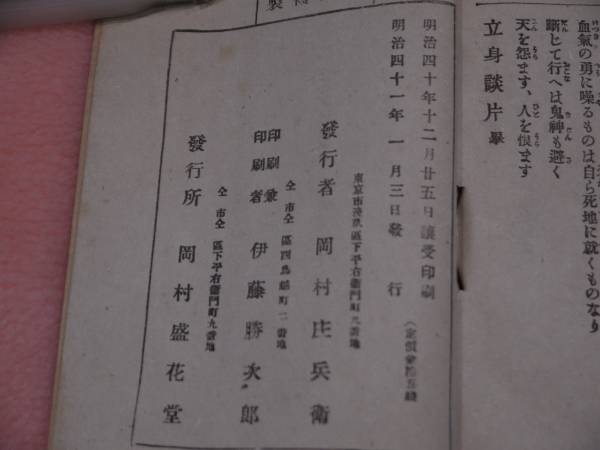 血氣の勇に噪るものは自ら死地に就くものなり
斷じて行へは鬼神も避く
天を怨ます、人を恨ます
立身談片 畢
明治四十年十二月廿五日讓受印刷
明治四十一年一月三日發行
東京市淺草區下平右衛門町九番地
發行者 岡村庄兵衛
仝市仝區四島越町二番地
印刷兼印刷者 伊藤勝次郎
仝市仝區下平右衛門町九番地
發行所 岡村盛花堂
製